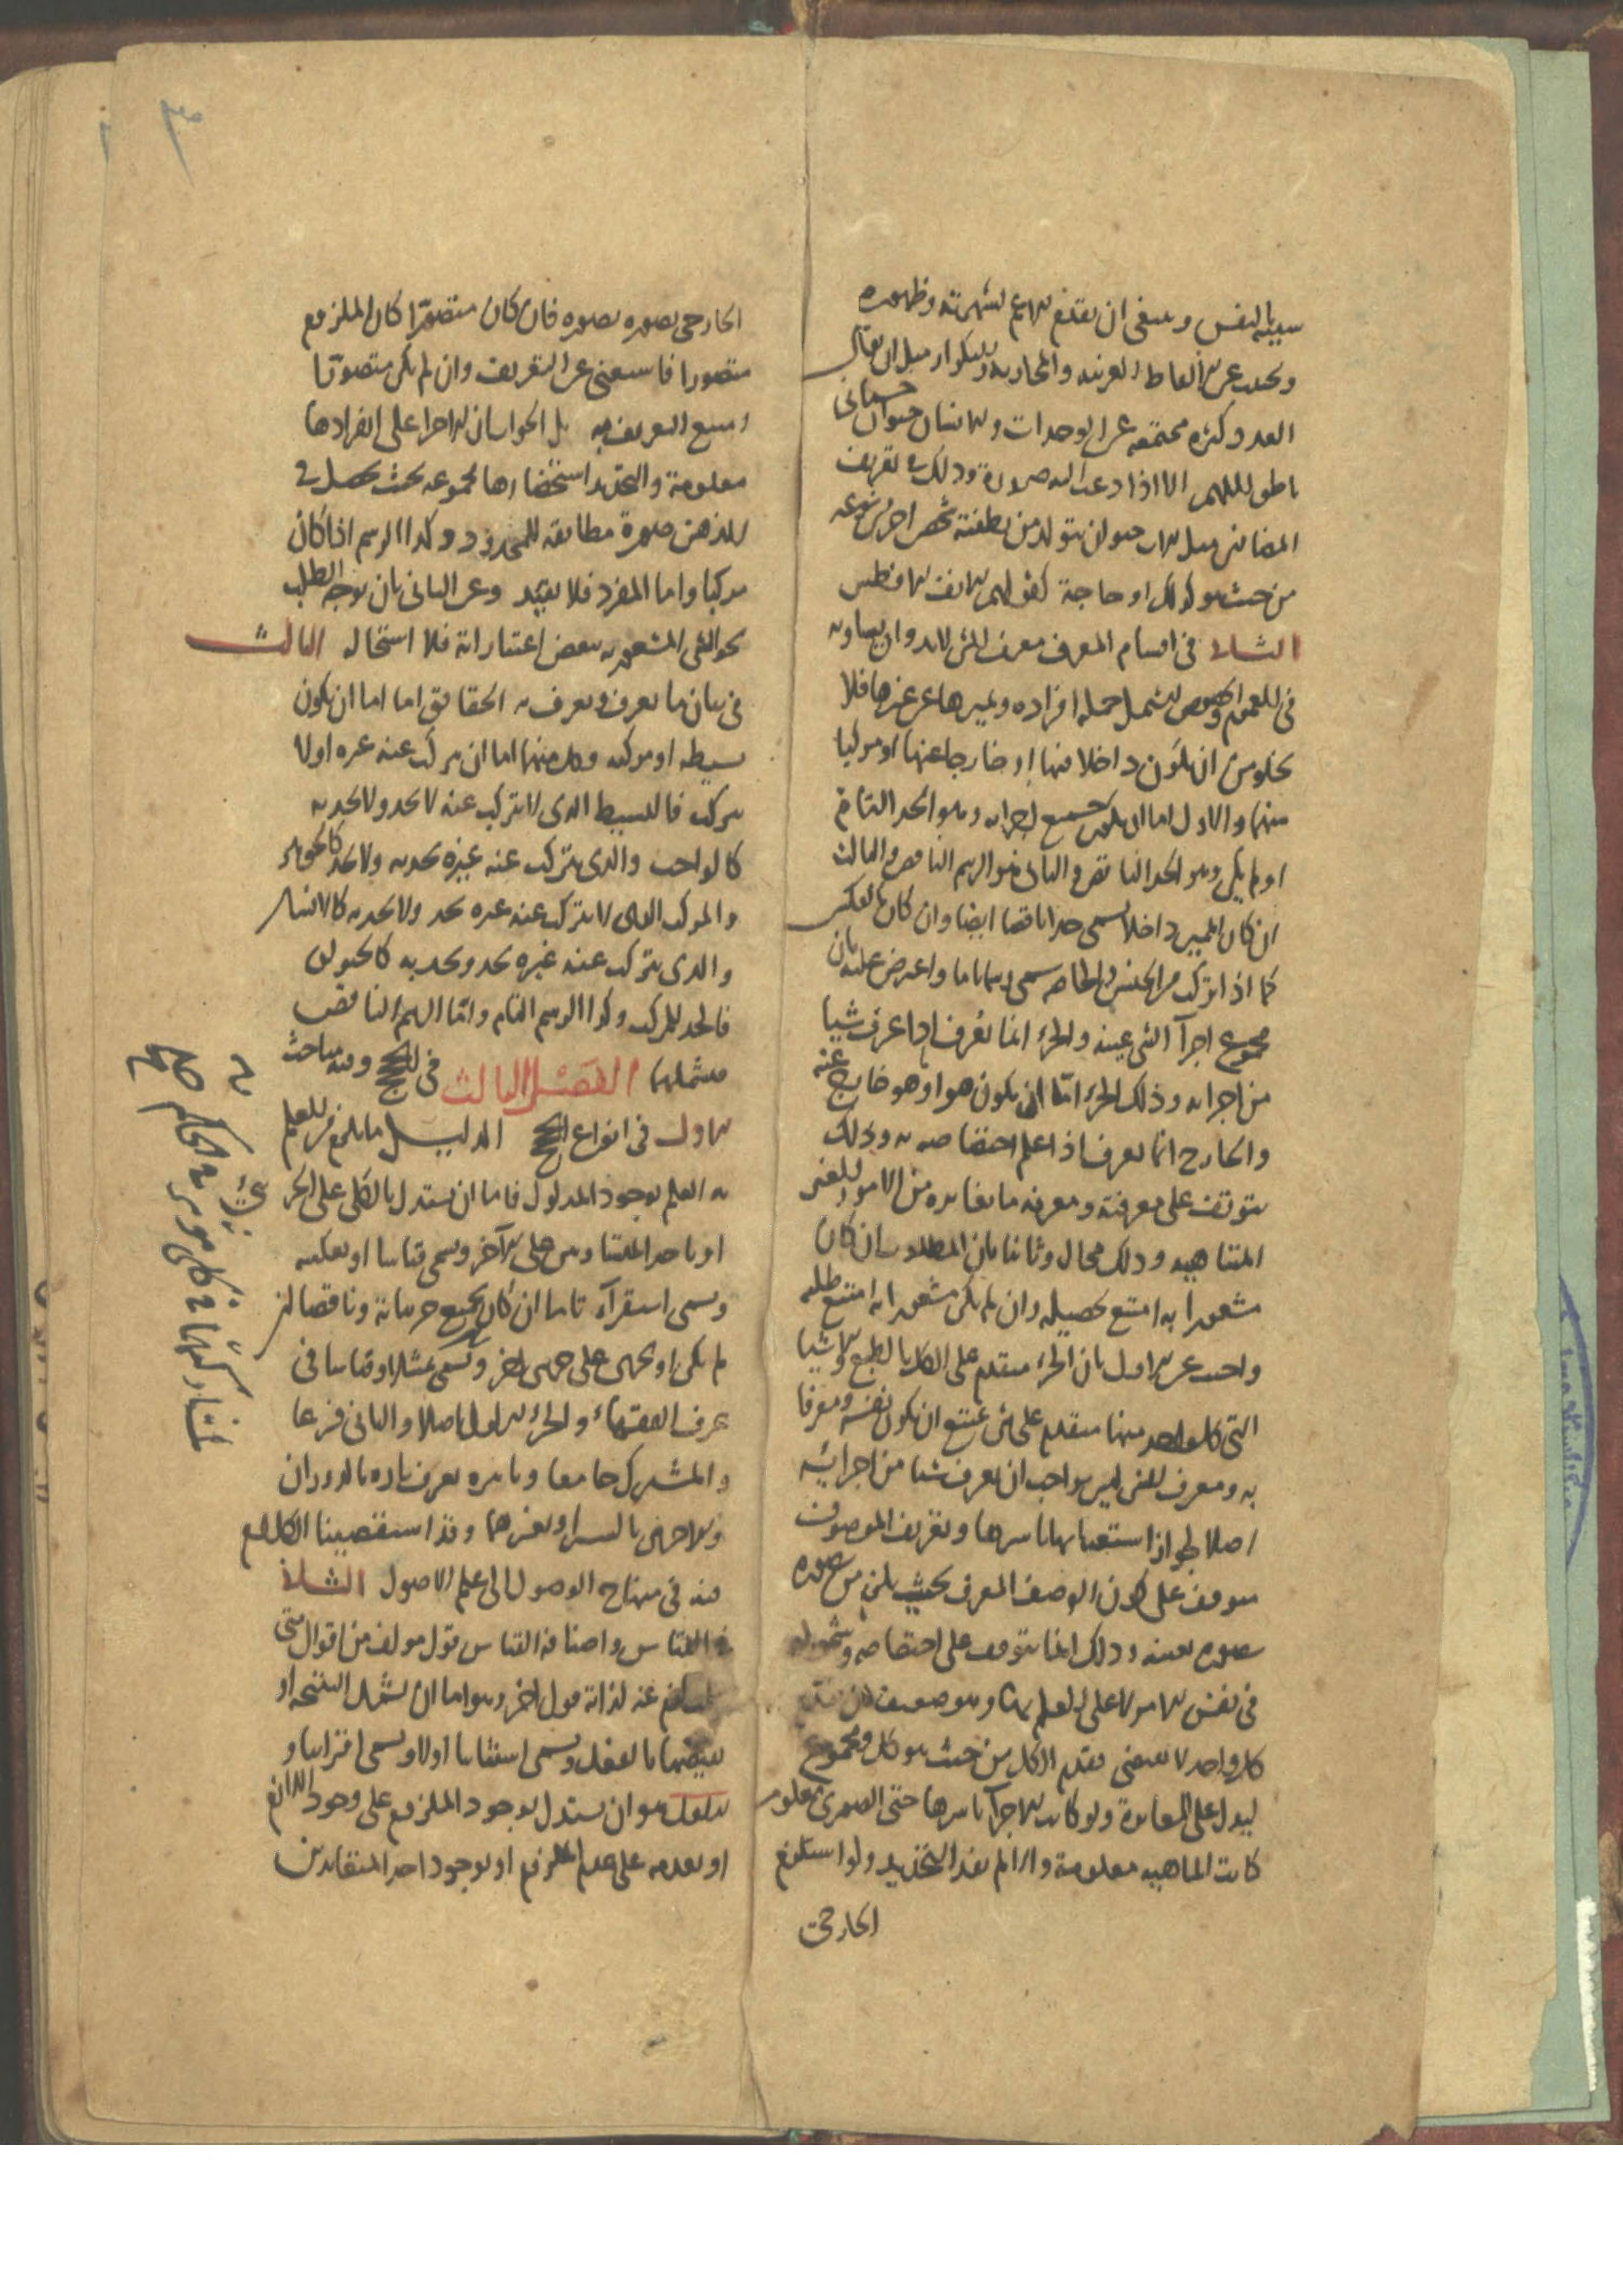 سببيه بالنفس وينبغى ان يقدم الاعم لشهرته وظهوره
ويجتنب عن الالفاظ الغريبه والمجازيه والتكرار مثل ان يقال
العدد كثره مجتمعه عن الوحدات والانسان حيوان جسمانى
ناطق اللهم الا اذا دعت اليه ضرورة وذلك فى تعريف
المتضايفين مثل الاب حيوان يتولد من نطفته شخص اخر من نوعه
من حيث هو كذلك او حاجة كقولهم الانف الافطس
الثانى فى اقسام المعرف معرف الشئ لابد وان يساويه
فى العموم والخصوص ليشمل جملة افراده ويميزها عن غيرها فلا
يخلو من ان يكون داخلا فيها او خارجا عنها او مركبا
منهما والاول اما ان يكون جميع اجزايه وهو الحد التام
او لم يكن وهو الحد الناقص والثانى هو الرسم الناقص والثالث
ان كان المميز داخلا يسمى حدا ناقصا ايضا وان كان بالعكس
كما اذا تركب من الجنس والخاصه يسمى رسما تاما واعترض عليه بان
مجموع اجزآ الشى عينه والجزء انما يُعرف اذا عرف شيا
من اجزايه وذلك الجزء امّا ان يكون هو او هو خارج عنه
والخارج انما يعرف اذا علم اختصاصه به وذلك
يتوقف على معرفته ومعرفة ما يغايره من الامور الغير
المتناهيه وذلك محال وثانيا بان المطلوب ان كان
مشعورا به امتنع تحصيله وان لم يكن مشعورا به امتنع طلبه
واجيب عن الاول بان الجزء متقدم على الكل بالطبع والاشيا
التى كل واحد منها متقدم على شئ يمتنع ان يكون نفسه ومعرفا
به ومعرف الشى ليس بواجب ان يعرف شيا من اجزائيه
اصلا لجواز استغنايها باسرها وتعريف الموصوف
يتوقف على كون الوصف المعرف بحيث يلزم من تصوره
تصوره بعينه وذلك انما يتوقف على اختصاصه وشموله
فى نفس الامر لا على العلم بهما وهو ضعيف
كل واحد لا يقتضى تقدم الكل من حيث هو كل ومجموع
ليدل على المغايرة ولو كانت الاجزآ باسرها حتى الصورى معلومه
كانت الماهيه معلومة والا لم يفد التحديد ولو استلزم
الخارجى
الخارجى تصوره تصوره فان كان متصوّرا كان الملزوم
متصورا فاستغنى عن التعريف وان لم يكن متصوّرا
امتنع التعريف به بل الجواب ان الاجزا على انفرادها
معلومة والتحديد استحضارها مجموعه بحيث تحصل فى
الذهن صورة مطابقه للمحدود وكذا الرسم اذا كان
مركبا واما المفرد فلا يفيد وعن الثانى بان توجه الطلب
نحو الشى المشعور به ببعض اعتباراته فلا استحاله الثالث
فى بيان ما يعرف ويعرف به الحقايق اما اما ان يكون
بسيطه او مركبه وكل منهما اما ان يتركب عنه غيره او لا
يتركب فالبسيط الذى لا يتركب عنه لا يحد ولا يحد به
كالواجب والذى يتركب عنه غيره يحد به ولا يحد كالجوهر
والمركب الذى لا يتركب عنه غيره يحد ولا يحد به كالانسان
والذى يتركب عنه غيره يحد ويحد به كالحيوان
فالحد للمركب وكذا الرسم التام وامّا الرسم الناقص
فيشملهما الفصل الثالث فى الحجج وفيه مباحث
الاول فى انواع الحجج الدليل ما يلزم من العلم
به العلم بوجود المدلول فاما ان يستدل بالكلى على الجزئى
او باحد المتساويين على الآخر ويسمى قياسا او بعكسه
ويسمى استقرآء تاما ان كان بجميع جزياته وناقصا ان
لم يكن او بجزئى على جزئى اخر ويسمى تمثيلا وقياسا فى
عرف الفقهاء والجزء الاول اصلا والثانى فرعا
والمشترك جامعا وتاثيره يعرف تاره بالدوران
والاخرى بالسبر او بغيرهما وقد استقصينا الكلام
فيه فى منهاج الوصول الى علم الاصول الثانى
فى القياس واصنافه القياس قول مولف من اقوال متى
يلزم عنه لذاته قول اخر وهو اما ان يشمل النتيجه او
نقيضها بالفعل ويسمى استثنايا اولا ويسمى اقترانيا و
الاول هو ان يستدل بوجود الملزوم على وجود اللازم
او بعدمه على عدم الملزوم او بوجود احد المتعاندين